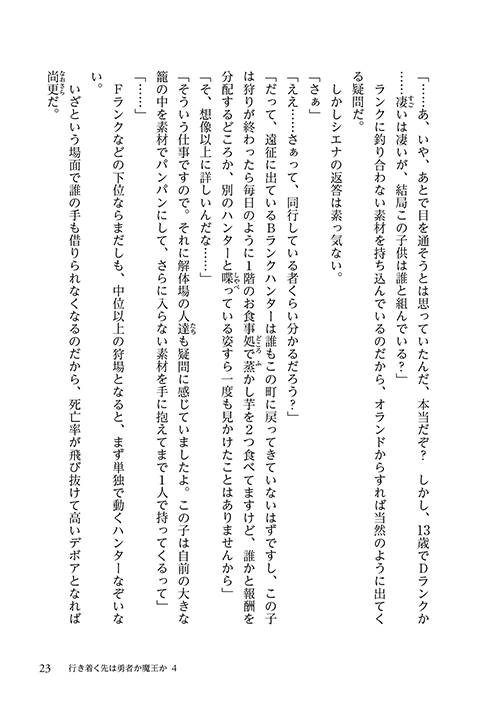 「……あ、いや、あとで目を通そうとは思っていたんだ、本当だぞ？　しかし、13歳でDランクか
……凄いは凄いが、結局この子供は誰と組んでいる？」
ランクに釣り合わない素材を持ち込んでいるのだから、オランドからすれば当然のように出てく
る疑問だ。
しかしシエナの返答は素っ気ない。
「さぁ」
「ええ……さぁって、同行している者くらい分かるだろう？」
「だって、遠征に出ているBランクハンターは誰もこの町に戻ってきていないはずですし、この子
は狩りが終わったら毎日のように1階のお食事処で蒸かし芋を2つ食べてますけど、誰かと報酬を
分配するどころか、別のハンターと喋っている姿すら一度も見かけたことはありませんから」
「そ、想像以上に詳しいんだな……」
「そういう仕事ですので。それに解体場の人達も疑問に感じていましたよ。この子は自前の大きな
籠の中を素材でパンパンにして、さらに入らない素材を手に抱えてまで1人で持ってくるって」
「……」
Fランクなどの下位ならまだしも、中位以上の狩場となると、まず単独で動くハンターなぞいな
い。
いざという場面で誰の手も借りられなくなるのだから、死亡率が飛び抜けて高いデボアとなれば
尚更だ。
23　行き着く先は勇者か魔王か 4